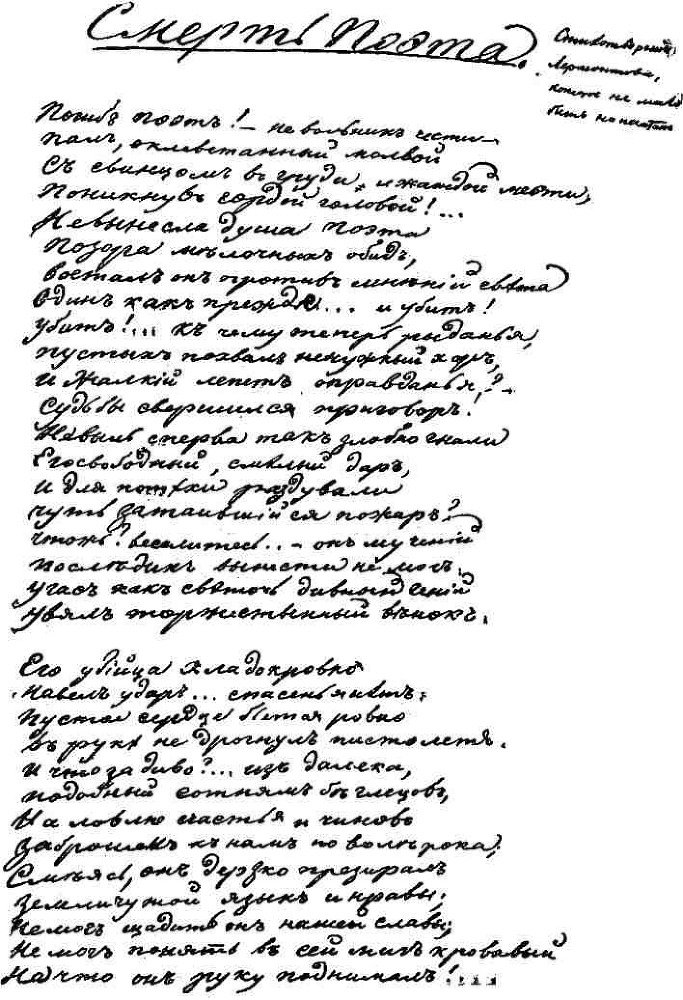 Смерть Поэта.
Стихотвореніе
Лермонтова,
которое не могло
быть напечатано
Погибъ поэтъ! — невольникъ чести —
палъ, оклеветанный молвой
Съ свинцомъ въ груди, и жаждой мести,
Поникнувъ гордой головой!...
Невынесла душа поэта
Позора мѣлочныхъ обидъ,
возсталъ онъ противъ мнѣній свѣта
Одинъ какъ прежде... и убитъ!
убитъ!... къ чему теперь рыданья,
пустыхъ похвалъ ненужный хоръ,
И жалкій лепетъ оправданья,? —
Судьбы свершился приговоръ!
Невыль сперва такъ злобно гнали
Его свободный, смѣлый даръ,
и для потѣхи раздували
чуть затаившійся пожаръ? —
чтожъ? веселитесь.. — онъ мученій
послѣднихъ вынести не могъ.
угасъ какъ свѣточь дивный геній
увялъ торжественный вѣнокъ.
Его убійца хладокровно
навелъ ударъ... спасенья нѣтъ:
пустое сердце бьется ровно
въ рукѣ не дрогнулъ пистолетъ.
и что за диво?... изъ далека,
подобный сотнямъ бѣглецовъ,
На ловлю счастья и чиновъ
заброшенъ къ намъ по волѣ рока;
Смѣясь, онъ дерзко презиралъ
земли чужой языкъ и нравы;
Не могъ щадить онъ нашей славы;
Не могъ понять въ сей мигъ кровавый
На что онъ руку поднималъ!....